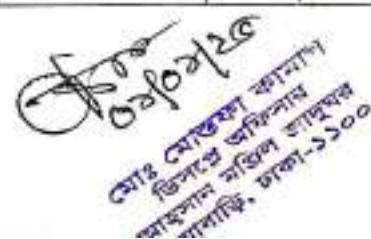 ০২/০২/২৫
মোঃ মোস্তফা কামাল
ডিসপ্লে অফিসার
আহসান মঞ্জিল জাদুঘর
ঢাকা-১১০০